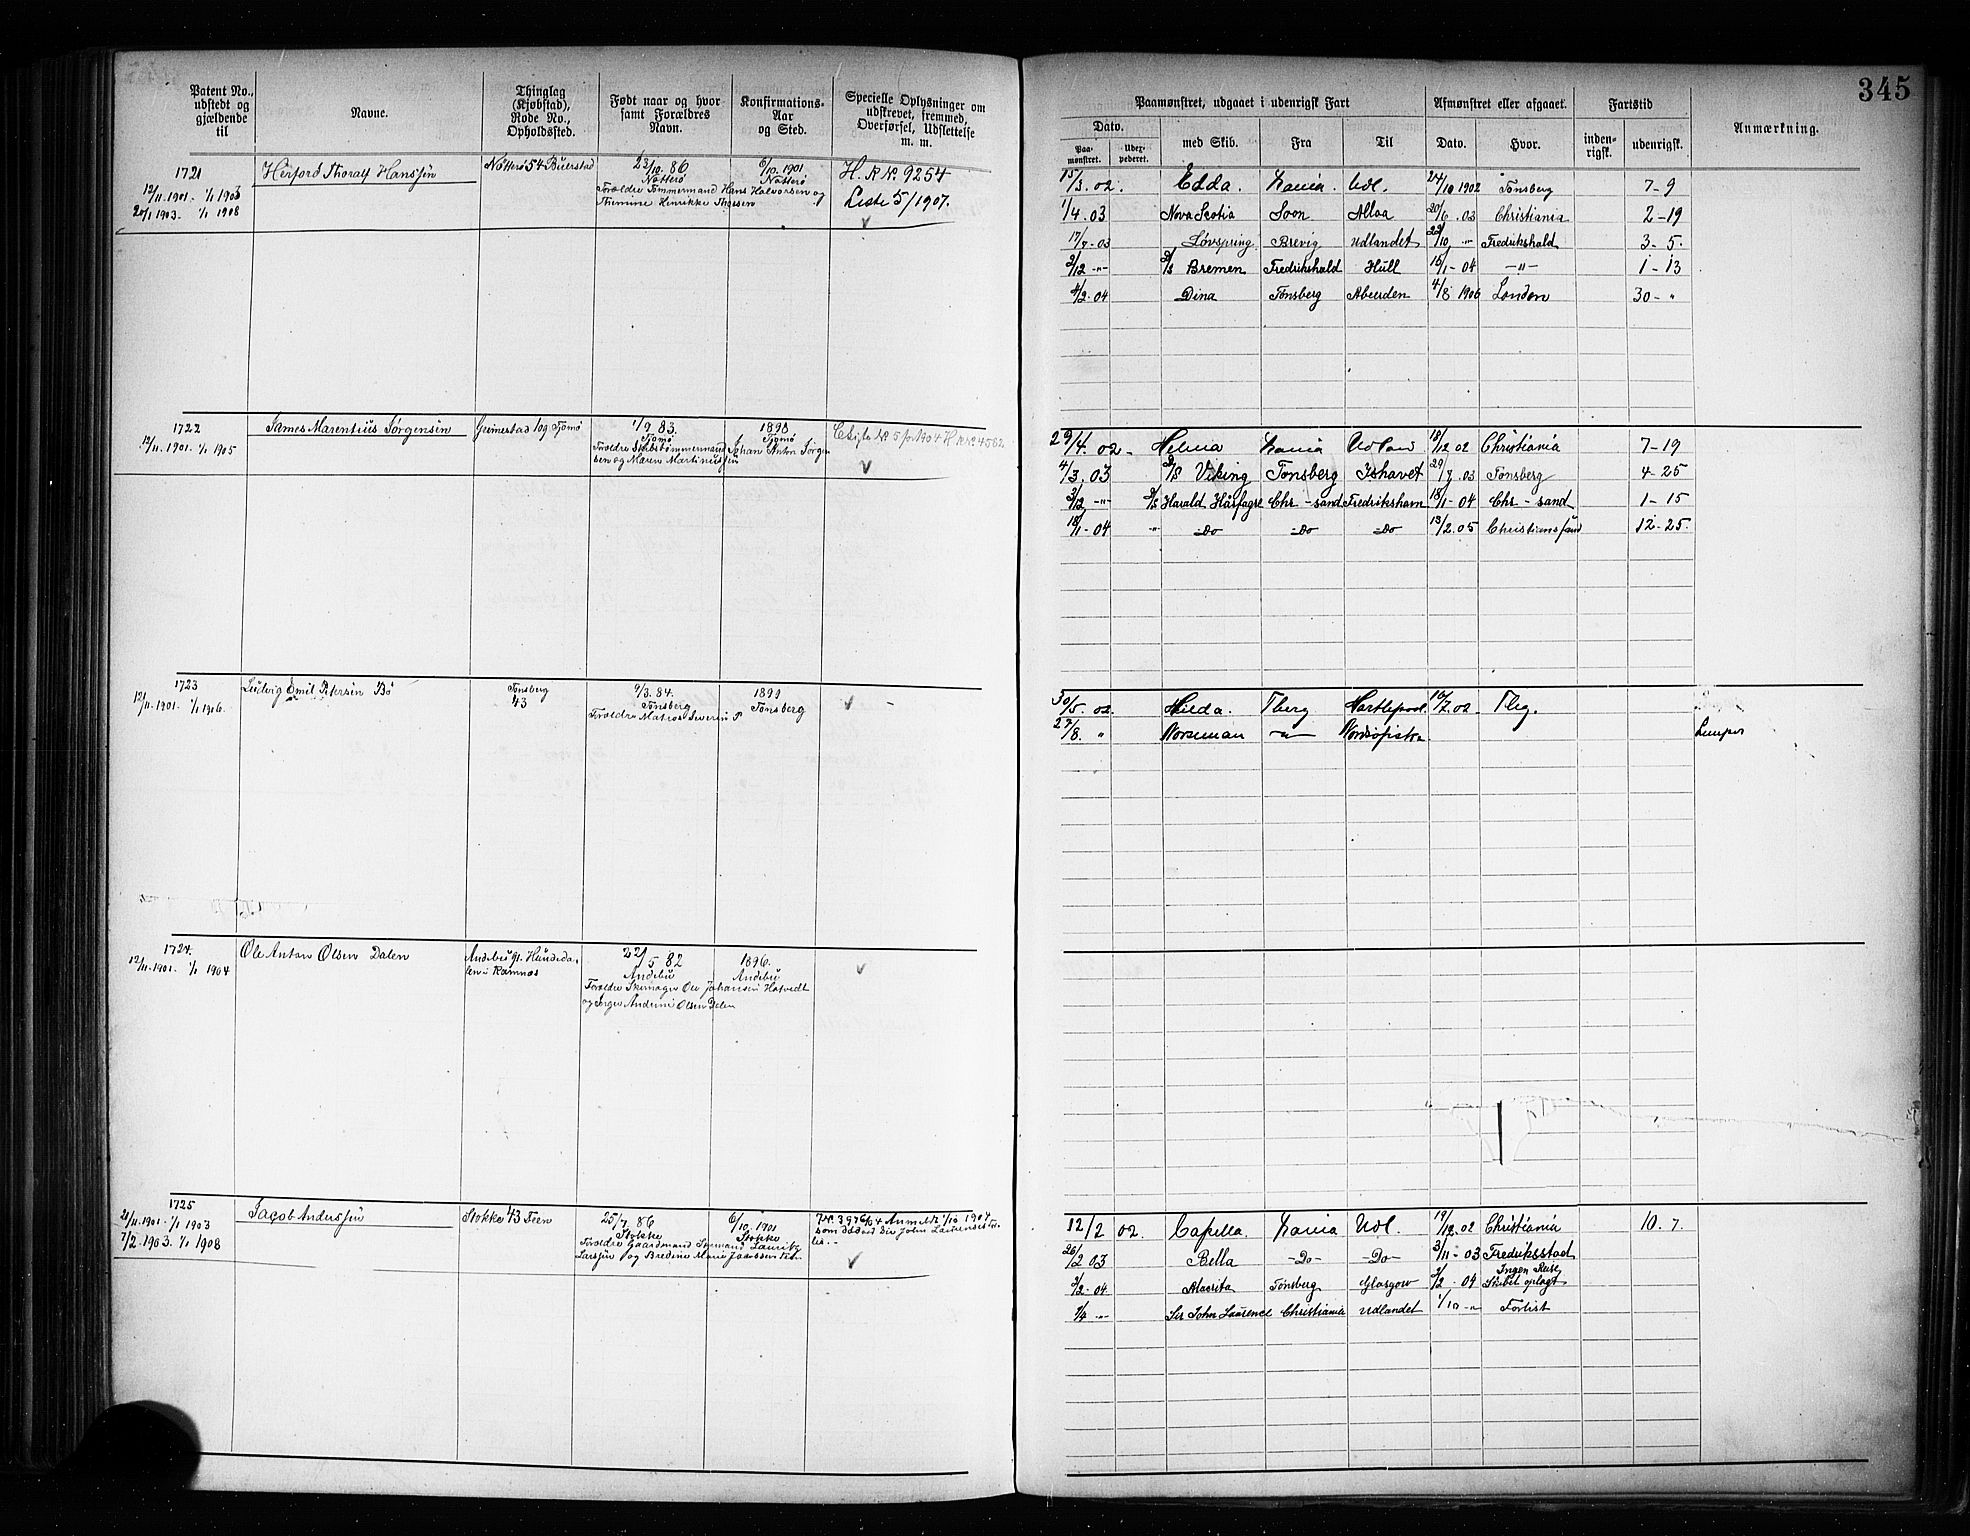 345
Patent No., udstedt og gjældende til
Navne.
Thinglag (Kjøbstad), Rode No., Opholdssted.
Født naar og hvor samt Forældres Navn.
Konfirmations-Aar og Sted.
Specielle Oplysninger om udskrevet, fremmed, Overførsel, Udslettelse m. m.
Paamønstret, udgaaet i udenrigsk Fart
Afmønstret eller afgaaet.
Fartstid
Anmærkning.
Dato.
Paa-mønstret.
Uder-pederet.
med Skib.
Fra
Til
Dato.
Hvor.
inden-rigsk.
udenrigsk.
1721
12/11. 1901. 1/1 1903
20/1 1903. 1/1 1908
Herford Thoralf Hanssen
Nøtterø 54 Buerstad
23/10. 86
Nøtterø
Forældre Tømmermand Hans Halvorsen og
Henrikke
6/10. 1901
Nøtterø
H. R. Nº. 9254
Liste 5/1907.
15/3. 02. Edda. Lania. Udl. 24/10 1902 Tønsberg 7-9
1/4. 03 Nova Scotia Soon Alloa 20/6. 03 Christiania 2-19
17/7. 03 Løvspring Brevig Udlandet 22/10. " Fredrikshald 3-5.
2/12 -"- D/S Bremen Fredrikshald Hull 15/1-04 -"- 1-13
4/2. 04 Dina Tønsberg Aberden 4/8 1906 London 30-"
1722
12/11. 1901. 1/1 1905
James Marentius Jørgensen
Grimestad 109 Tjømø
1/9 83.
Tjømø
Forældre Skibstømmermand Johan Anton Jørgen
sen og Maren
1898
Tjømø
29/4. 02. Helma Lania Udland 18/12 02 Christiania 7-19
4/3. 03 D/S Viking Tønsberg Ishavet 29/7. 03 Tønsberg 4-25
3/12 -"- D/S Harald Hårfagre Chr-sand Fredrikshavn 18/1-04 Chr-sand 1-15
18/1-04 " Do Do Do 13/2. 05 Christianssand 12-25.
1723
12/11. 1901. 1/1 1906.
Ludvig Emil Petersen Bø
Tønsberg
43
9/3. 84.
Tønsberg
Forældre Matros Severin P
1899
Tønsberg
30/5. 02. Hilda. Tberg Hartlepool. 10/7. 02. Tbg.
27/8. " Norseman -"-
1724.
12/11. 1901. 1/1 1904
Ole Anton Olsen Dalen
Andebu
i Ramnæs
22/5 82
Andebu
Forældre Skomager Ole Johansen Hotvedt
og Inger Andrine Olsen Dalen
1896.
Andebu
1725
21/11. 1901. 1/1 1903
7/2. 1903. 1/1 1908
Jacob Anderssen
Stokke 43 Feen
25/7. 86
Stokke
Forældre Gaardmand Sømand Lauritz
Larssen og Bredine Marie
6/10. 1901
Stokke
12/2 02. Capella. Lania Udl. 19/12. 02 Christiania 10. 7.
26/2 03 Bella -Do- -Do- 3/11-03 Fredriksstad
2/2. 04 Tønsberg Glasgow 2/2. 04 Ingen Reise
Skibet oplagt
7/4 -"- Sir John Laurence Christiania Udlandet 1/10 -"- Forlist